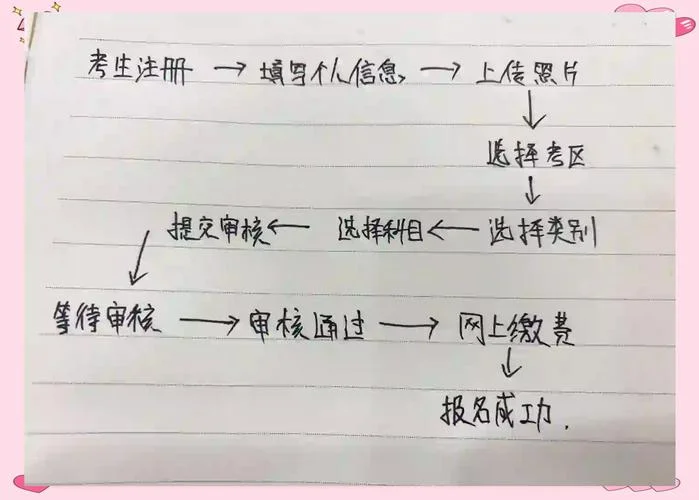 考生注册 → 填写个人信息 → 上传照片
↓
选择考区
↓
提交审核 ← 选择科目 ← 选择类别
↓
等待审核 → 审核通过 → 网上缴费
↓
报名成功.